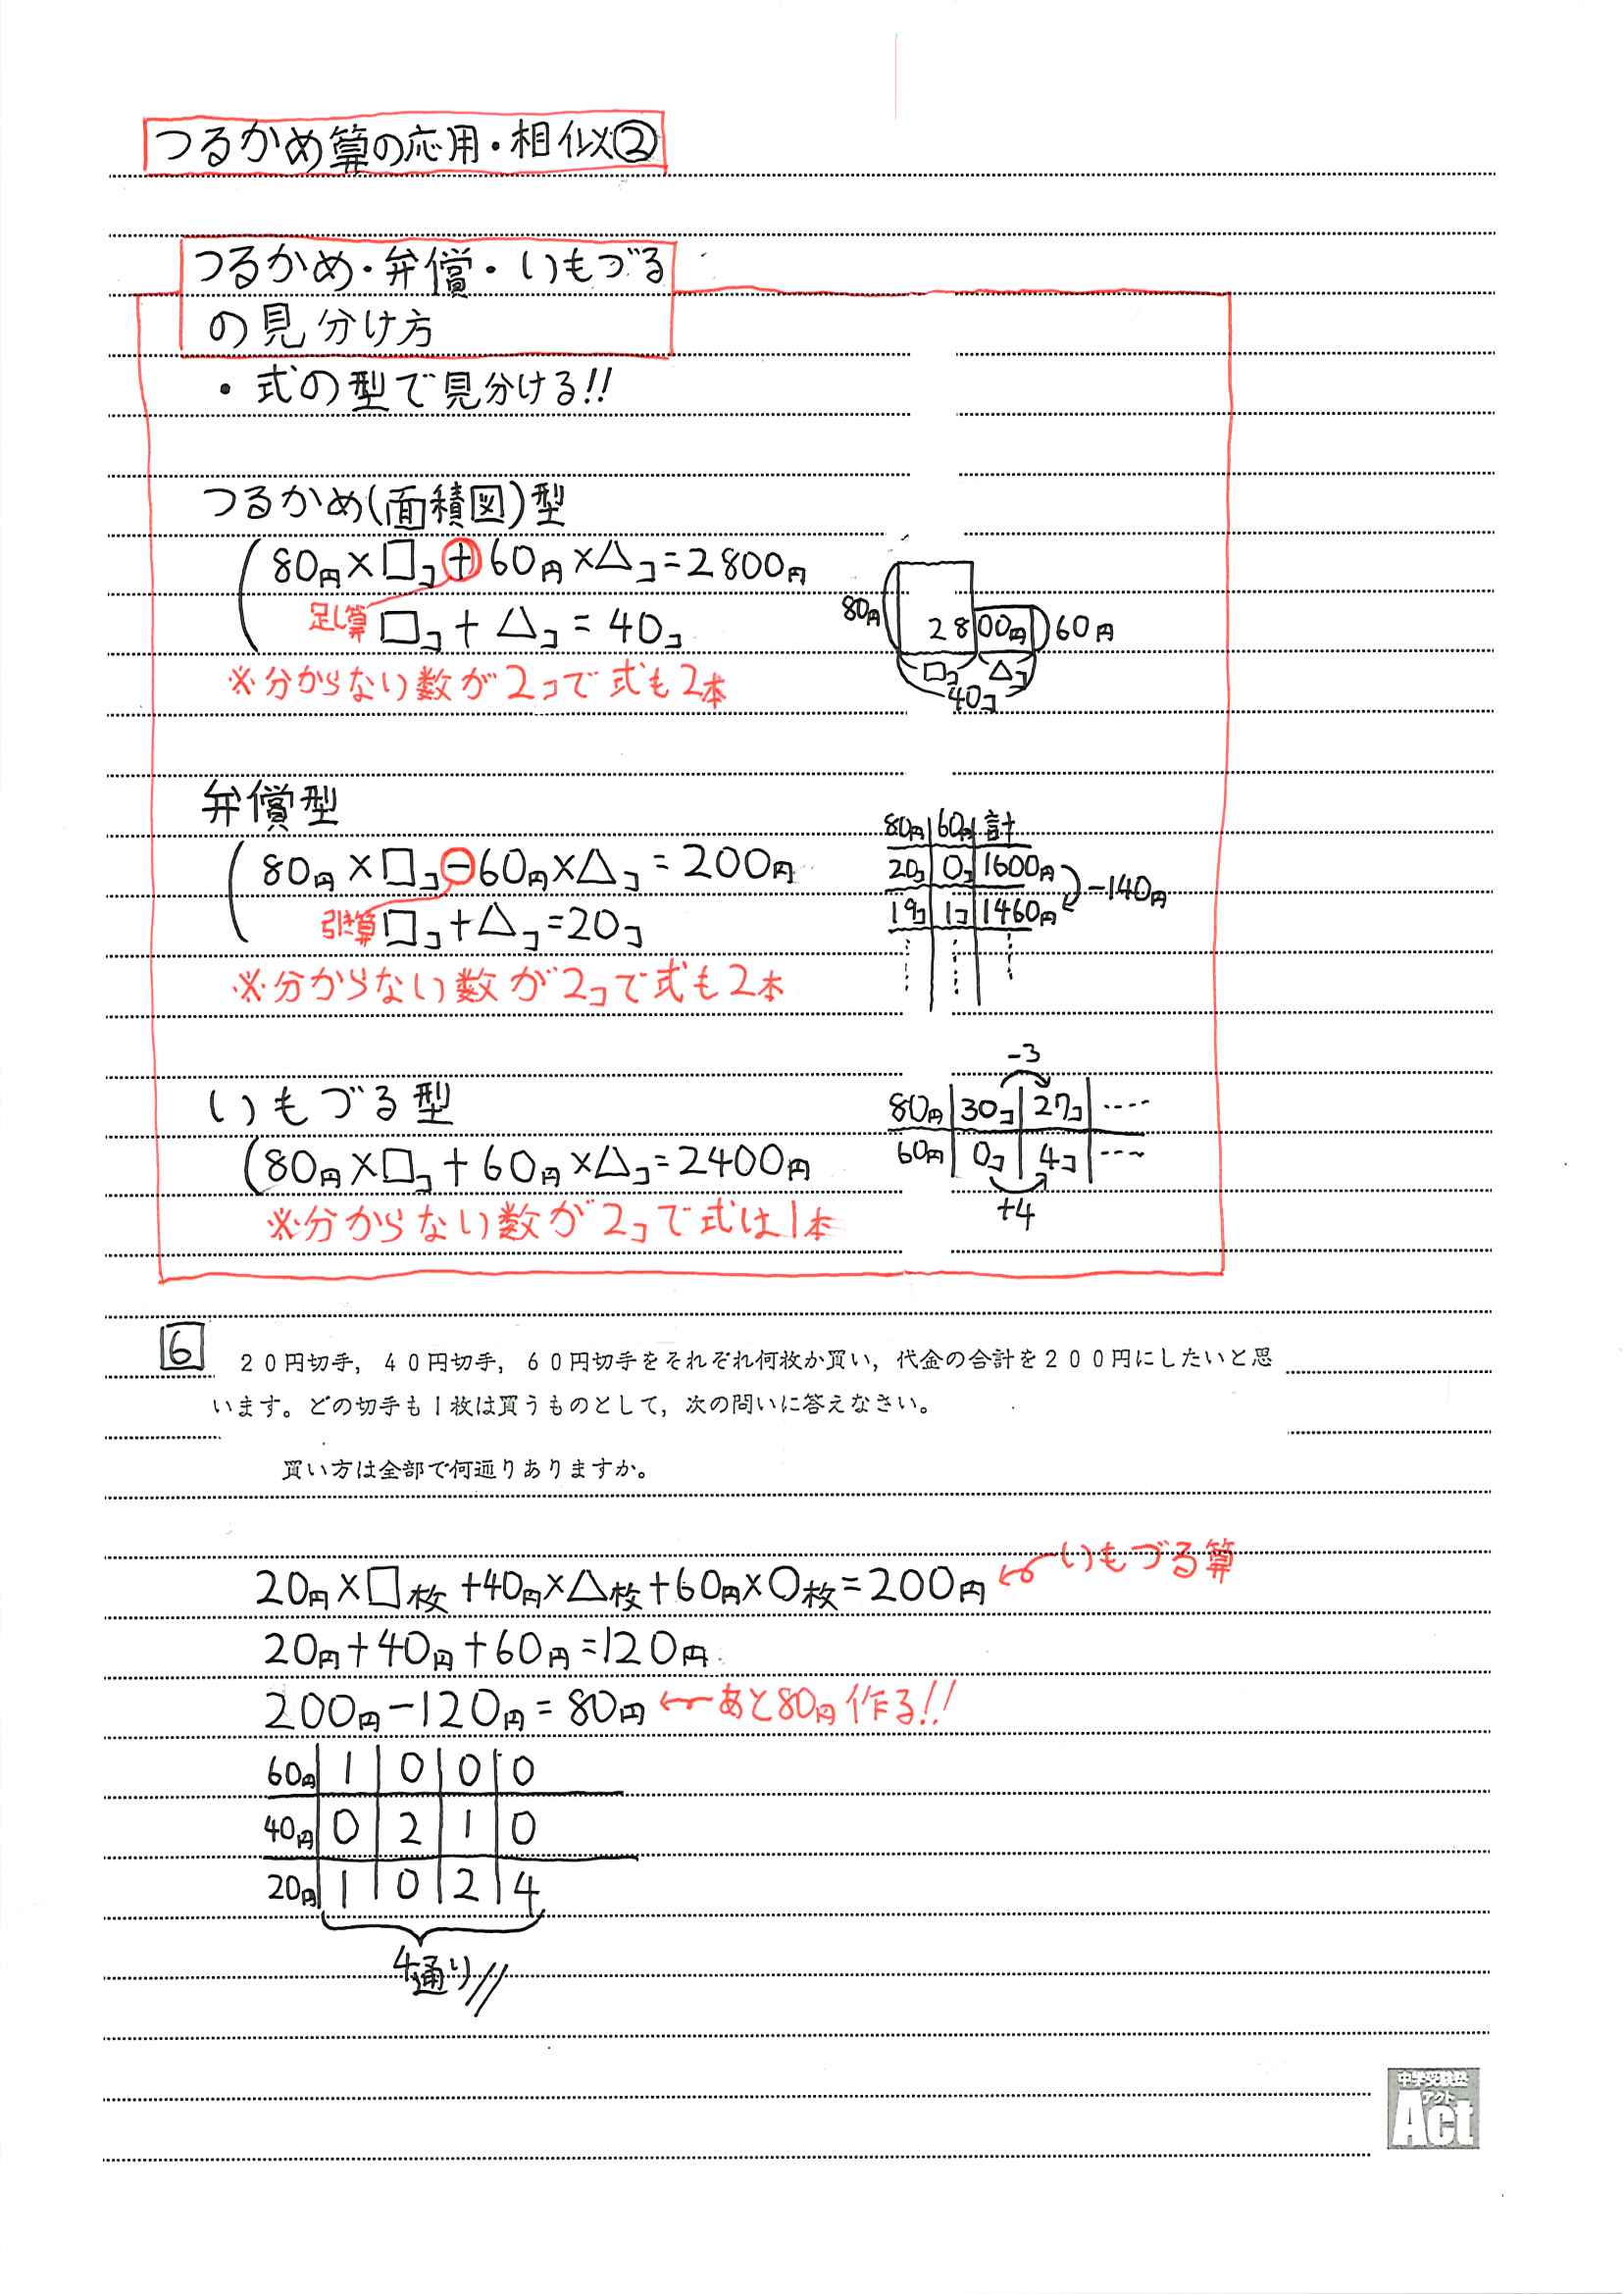 つるかめ算の応用・相似②
つるかめ・弁償・いもづる
の見分け方
・式の型で見分ける!!
つるかめ(面積図)型
80円×□コ+60円×△コ=2800円
足し算
□コ+△コ=40コ
※分からない数が2コで式も2本
80円
2800円
60円
□コ
△コ
40コ
弁償型
80円×□コ-60円×△コ=200円
引き算
□コ+△コ=20コ
※分からない数が2コで式も2本
80円 60円 計
20コ 0コ 1600円
-140円
19コ 1コ 1460円
いもづる型
(80円×□コ+60円×△コ=2400円
※分からない数が2コで式は1本
-3
80円 30コ 27コ ‥‥
60円 0コ 4コ ‥‥
+4
6
20円切手,40円切手,60円切手をそれぞれ何枚か買い,代金の合計を200円にしたいと思
います。どの切手も1枚は買うものとして,次の問いに答えなさい。
買い方は全部で何通りありますか。
20円×□枚+40円×△枚+60円×○枚=200円 ←いもづる算
20円+40円+60円=120円
200円-120円=80円 ←あと80円作る!!
60円 1 0 0 0
40円 0 2 1 0
20円 1 0 2 4
4通り//
中学受験塾
アクト
Act